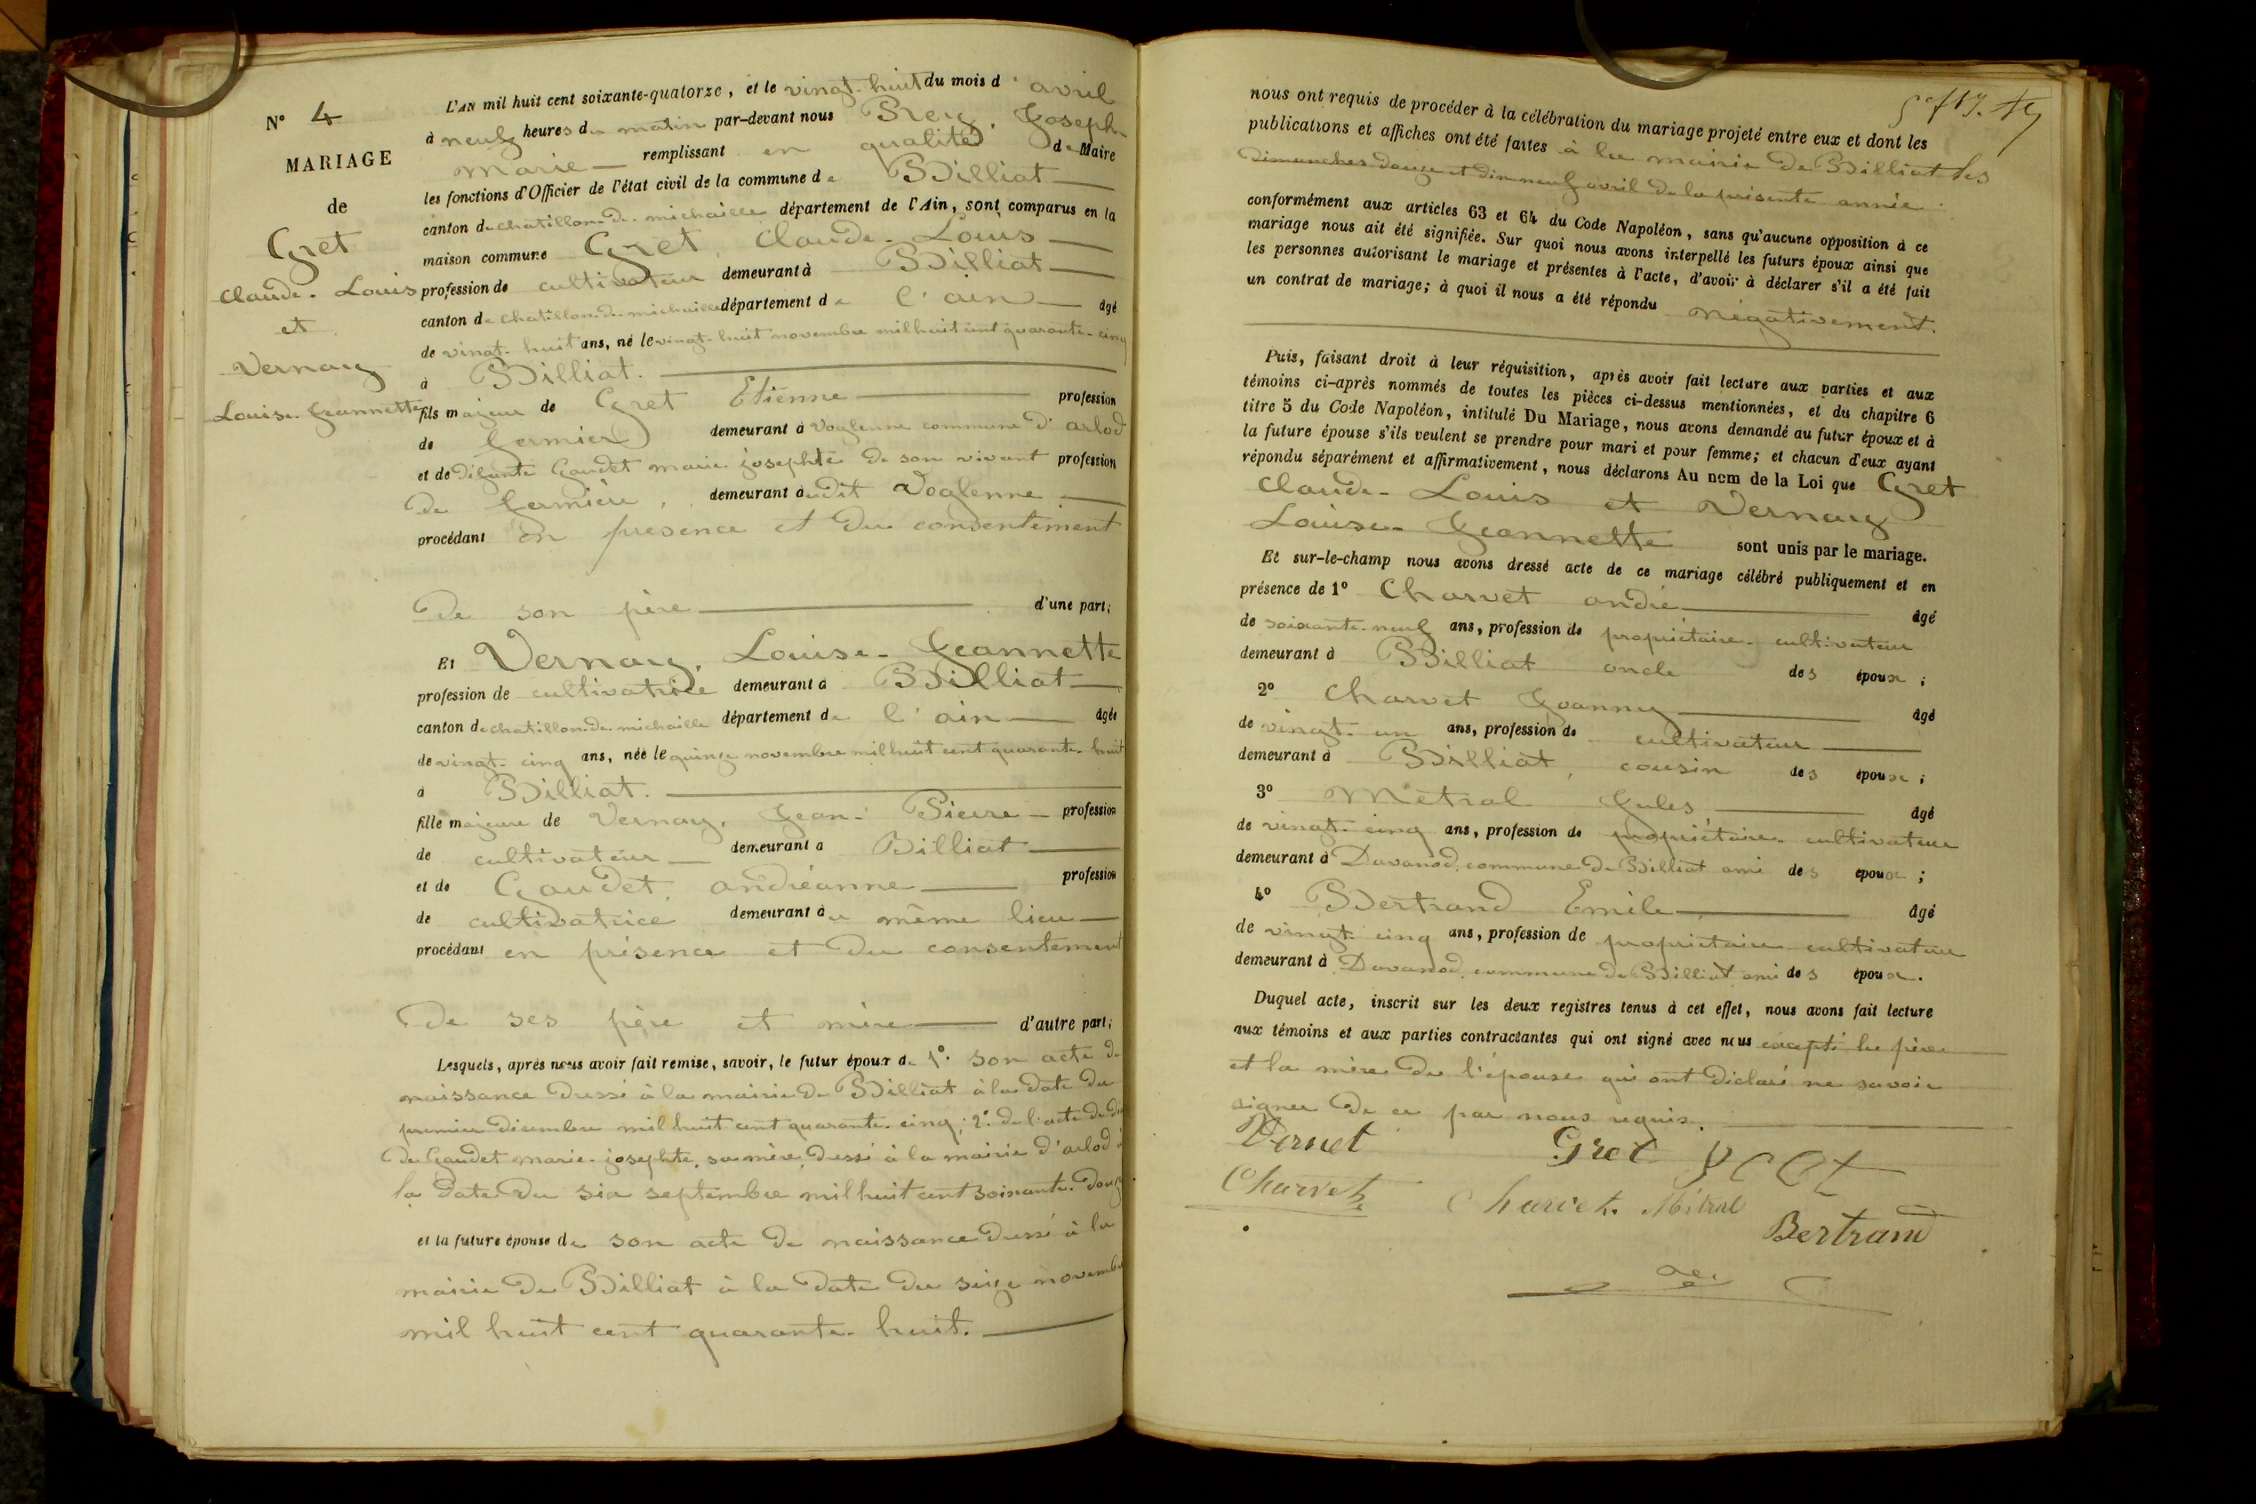 N° 4
MARIAGE
de
Gret
Claude-Louis
et
Vernay
Louise-Jeannette
L'AN mil huit cent soixante-quatorze, et le vingt-huit du mois d'avril
à neuf heures du matin par-devant nous Rey, Joseph-
Marie remplissant en qualité de Maire
les fonctions d'Officier de l'état civil de la commune de Billiat
canton de chatillon-de-michaille département de l'Ain, sont comparus en la
maison commune Gret, Claude-Louis
profession de cultivateur demeurant à Billiat
canton de chatillon-de-michaille département de l'ain âgé
de vingt-huit ans, né le vingt-huit novembre mil huit cent quarante-cinq
à Billiat.
fils majeur de Gret Etienne profession
de fermier demeurant à Voglenne commune d'arlod
et de défunte Gaudet marie-josephte de son vivant profession
de fermière, demeurant audit Voglenne
procédant en présence et du consentement
de son père d'une part;
Et Vernay, Louise-Jeannette
profession de cultivatrice demeurant à Billiat
canton de chatillon-de-michaille département de l'ain âgée
de vingt-cinq ans, née le quinze novembre mil huit cent quarante-huit
à Billiat.
fille majeure de Vernay, Jean-Pierre profession
de cultivateur demeurant à Billiat
et de Gaudet, andréanne profession
de cultivatrice demeurant au même lieu
procédant en présence et du consentement
de ses père et mère d'autre part;
Lesquels, après nous avoir fait remise, savoir, le futur époux de 1°. son acte de
naissance dressé à la mairie de Billiat à la date du
premier décembre mil huit cent quarante-cinq; 2°. de l'acte de
de Gaudet marie-josephte, sa mère, dressé à la mairie d'arlod à
la date du six septembre mil huit cent soixante-douze
et la future épouse de son acte de naissance dressé à la
mairie de Billiat à la date du seize novembre
mil huit cent quarante-huit.
nous ont requis de procéder à la célébration du mariage projeté entre eux et dont les
publications et affiches ont été faites à la mairie de Billiat les
dimanches douze et dix neuf avril de la présente année
conformément aux articles 63 et 64 du Code Napoléon, sans qu'aucune opposition à ce
mariage nous ait été signifiée. Sur quoi nous avons interpellé les futurs époux ainsi que
les personnes autorisant le mariage et présentes à l'acte, d'avoir à déclarer s'il a été fait
un contrat de mariage; à quoi il nous a été répondu négativement.
Puis, faisant droit à leur réquisition, après avoir fait lecture aux parties et aux
témoins ci-après nommés de toutes les pièces ci-dessus mentionnées, et du chapitre 6
titre 5 du Code Napoléon, intitulé Du Mariage, nous avons demandé au futur époux et à
la future épouse s'ils veulent se prendre pour mari et pour femme; et chacun d'eux ayant
répondu séparément et affirmativement, nous déclarons Au nom de la Loi que Gret
Claude-Louis et Vernay
Louise-Jeannette sont unis par le mariage.
Et sur-le-champ nous avons dressé acte de ce mariage célébré publiquement et en
présence de 1° Charvet andré âgé
de soixante-neuf ans, profession de propriétaire-cultivateur
demeurant à Billiat oncle des époux;
2° Charvet Joanny âgé
de vingt-un ans, profession de cultivateur
demeurant à Billiat, cousin des époux;
3° Métral Jules âgé
de vingt-cinq ans, profession de propriétaire-cultivateur
demeurant à Davanod, commune de Billiat ami des époux;
4° Bertrand Emile âgé
de vingt-cinq ans, profession de propriétaire-cultivateur
demeurant à Davanod, commune de Billiat ami des époux.
Duquel acte, inscrit sur les deux registres tenus à cet effet, nous avons fait lecture
aux témoins et aux parties contractantes qui ont signé avec nous excepté le père
et la mère de l'épouse qui ont déclaré ne savoir
signer de ce par nous requis.
Gret
Charvet
Charvet. Métral
Bertrand